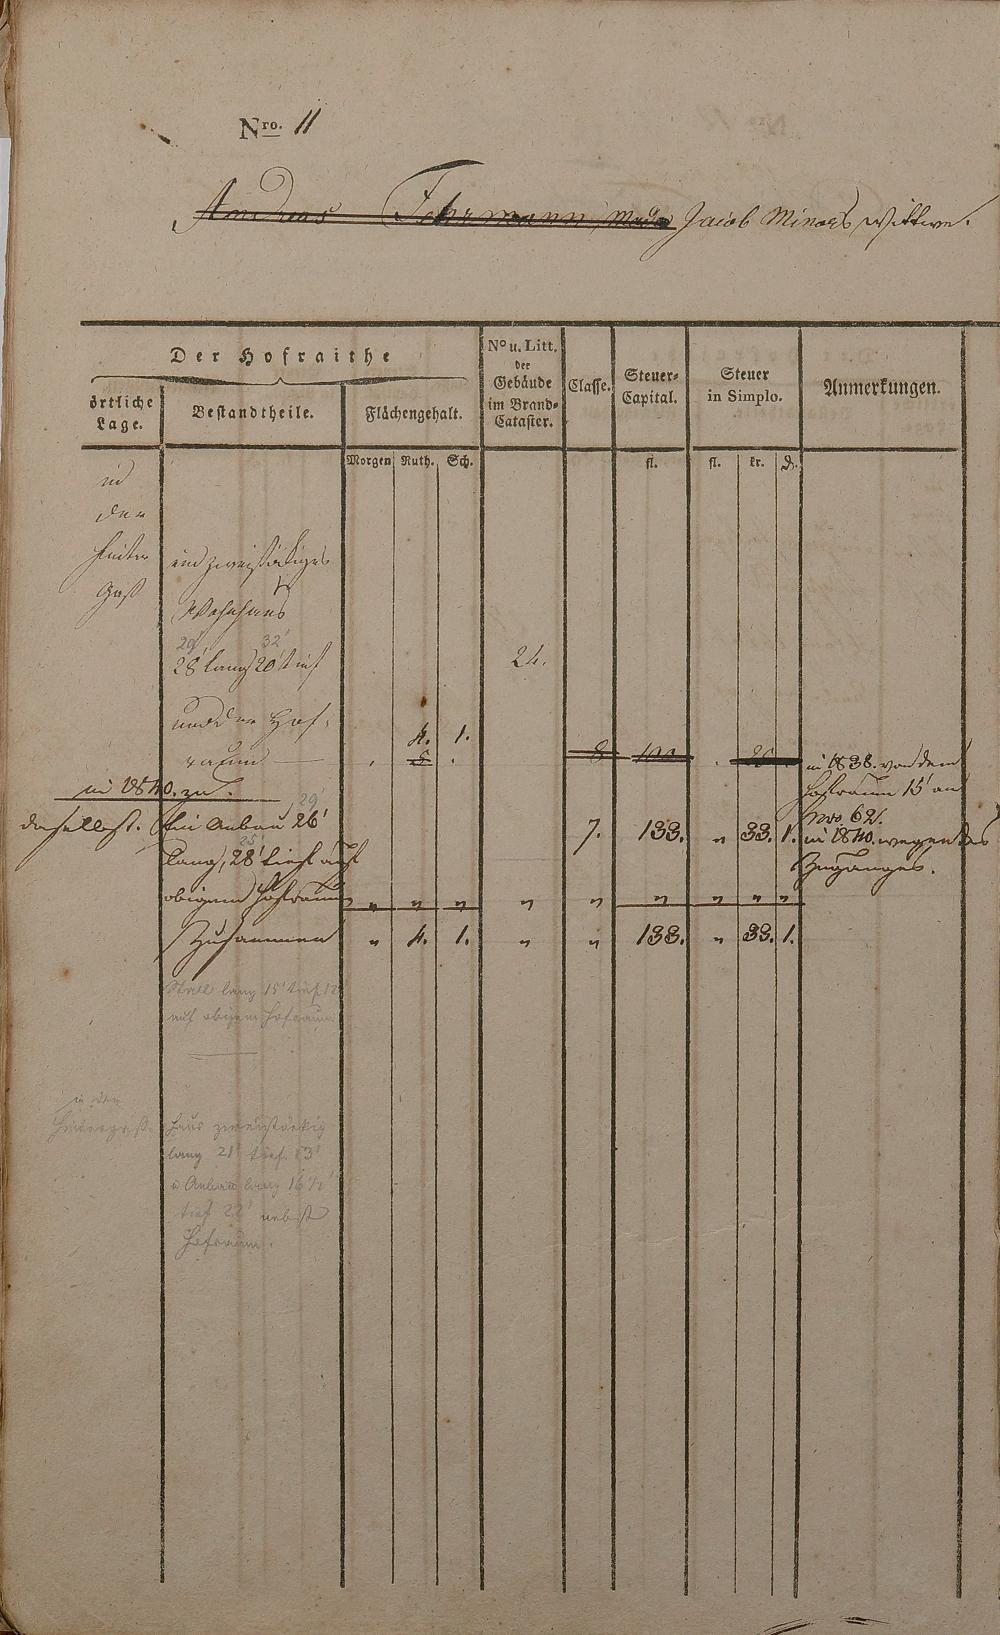 Nro. 11
Andreas Fehrmann, modo Jacob Minors Wittwe.
Der Hofraithe
örtliche Lage.
Bestandtheile.
Flächengehalt.
No u. Litt. der Gebäude im Brand-Cataster.
Classe.
Steuer-Capital.
Steuer in Simplo.
Anmerkungen.
Morgen Ruth. Sch. fl. fl. kr. d.
in
der
hinter
Gaß
ein zweistökiges
Wohnhaus
29' 32'
28' lang 20' tief 24.
und der Hof-
raum
4. 1.
5 . 8 100 . 25
in 1838. von dem
Hofraum 15' an
Nro 62.
in 1840. zu.
daselbst. Ein Anbau 26' 29'
lang, 28' tief auf 25'
obigem Hofraum
7. 133. " 33. 1.
in 1840. wegen des
Zuganges.
" " " " " " " " "
Zusammen " 4. 1. " " 133. " 33. 1.
Stall lang 15' tief 12
auf obigem Hofraum
in der
Hintergaß.
Haus zweistöckig
lang 21' tief 23'
u Anbau lang 16 1/2'
tief 22' nebst
Hofraum.